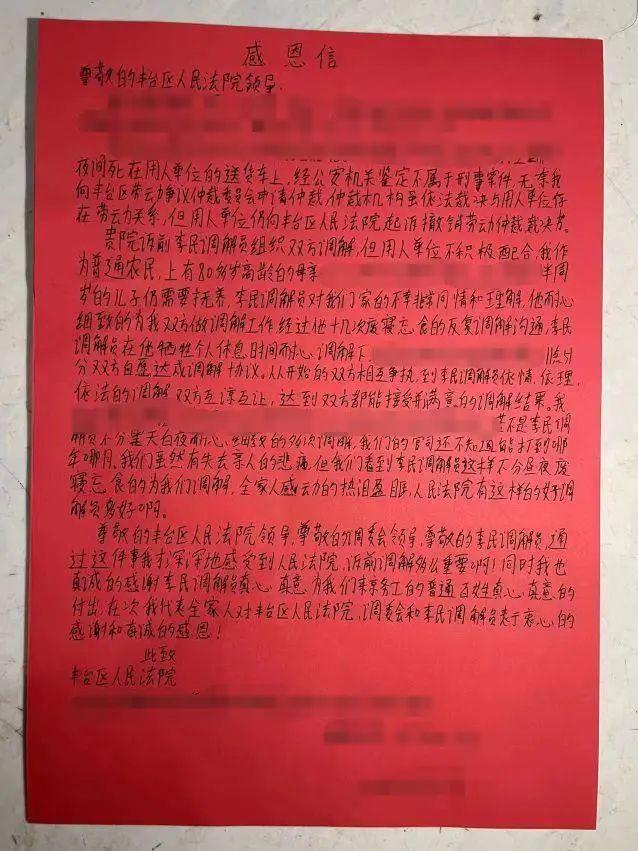 感恩信
尊敬的丰台区人民法院领导.
夜间死在用人单位的送货车上，经公安机关鉴定不属于刑事案件，无奈我
向丰台区劳动争议仲裁委员会申请仲裁，仲裁机构虽依法裁决与用人单位存
在劳动关系，但用人单位仍向丰台区人民法院起诉撤销劳动仲裁裁决书。
贵院诉前李民调解员组织双方调解，但用人单位不积极配合，我作
为普通农民，上有80多岁高龄的母亲 半周
岁的儿子仍需要抚养，李民调解员对我们家的不幸非常同情和理解，他耐心
细致的为我双方做调解工作，经过他十几次废寝忘食的反复调解沟通，李民
调解员在他牺牲个人休息时间耐心调解下 11点51
分双方自愿达成调解协议。从开始的双方相互争执，到李民调解员依情、依理、
依法的调解 双方互谅互让，达到双方都能接受并满意的调解结果。我
若不是李民调
解员不分星天白夜耐心、细致的多次调解，我们的官司还不知道能打到哪
年哪月，我们虽然有失去亲人的悲痛，但我们看到李民调解员这样不分昼夜废
寝忘食的为我们调解，全家人感动的热泪盈眶，人民法院有这样的好调
解员真好啊。
尊敬的丰台区人民法院领导，尊敬的调委会领导，尊敬的李民调解员，通
过这件事我才深深地感受到人民法院，诉前调解多么重要啊！同时我也
真诚的感谢李民调解员真心真意为我们来京务工的普通百姓真心真意的
付出，在次我代表全家人对丰台区人民法院，调委会和李民调解员表于衷心的
感谢和真诚的感恩！
此致
丰台区人民法院